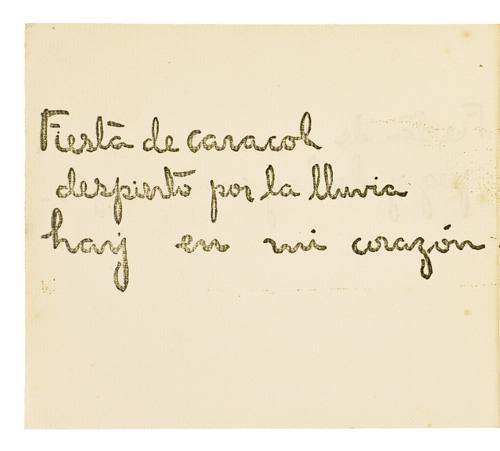 Fiesta de caracol
despierto por la lluvia
hay en mi corazón